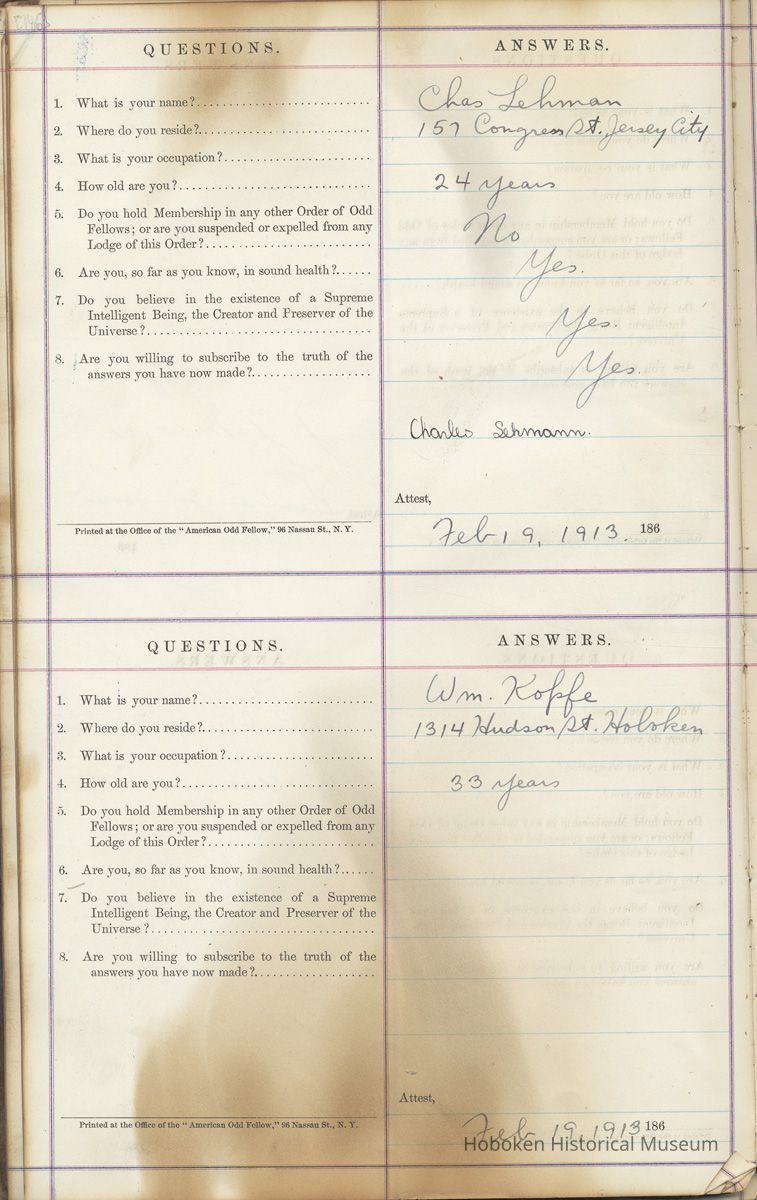 QUESTIONS.
ANSWERS.
1. What is your name?
Chas Lehman
2. Where do you reside?
157 Congress St. Jersey City
3. What is your occupation?
4. How old are you?
24 years
5. Do you hold Membership in any other Order of Odd
Fellows; or are you suspended or expelled from any
Lodge of this Order?
No
6. Are you, so far as you know, in sound health?
Yes.
7. Do you believe in the existence of a Supreme
Intelligent Being, the Creator and Preserver of the
Universe?
Yes.
8. Are you willing to subscribe to the truth of the
answers you have now made?
Yes.
Charles Lehmann.
Attest,
Printed at the Office of the "American Odd Fellow," 96 Nassau St., N. Y.
Feb 19, 1913. 186
QUESTIONS.
ANSWERS.
1. What is your name?
Wm. Koppe
2. Where do you reside?
1314 Hudson St. Hoboken
3. What is your occupation?
4. How old are you?
33 years
5. Do you hold Membership in any other Order of Odd
Fellows; or are you suspended or expelled from any
Lodge of this Order?
6. Are you, so far as you know, in sound health?
7. Do you believe in the existence of a Supreme
Intelligent Being, the Creator and Preserver of the
Universe?
8. Are you willing to subscribe to the truth of the
answers you have now made?
Attest,
Printed at the Office of the "American Odd Fellow," 96 Nassau St., N. Y.
Feb 19 1913 186
Hoboken Historical Museum